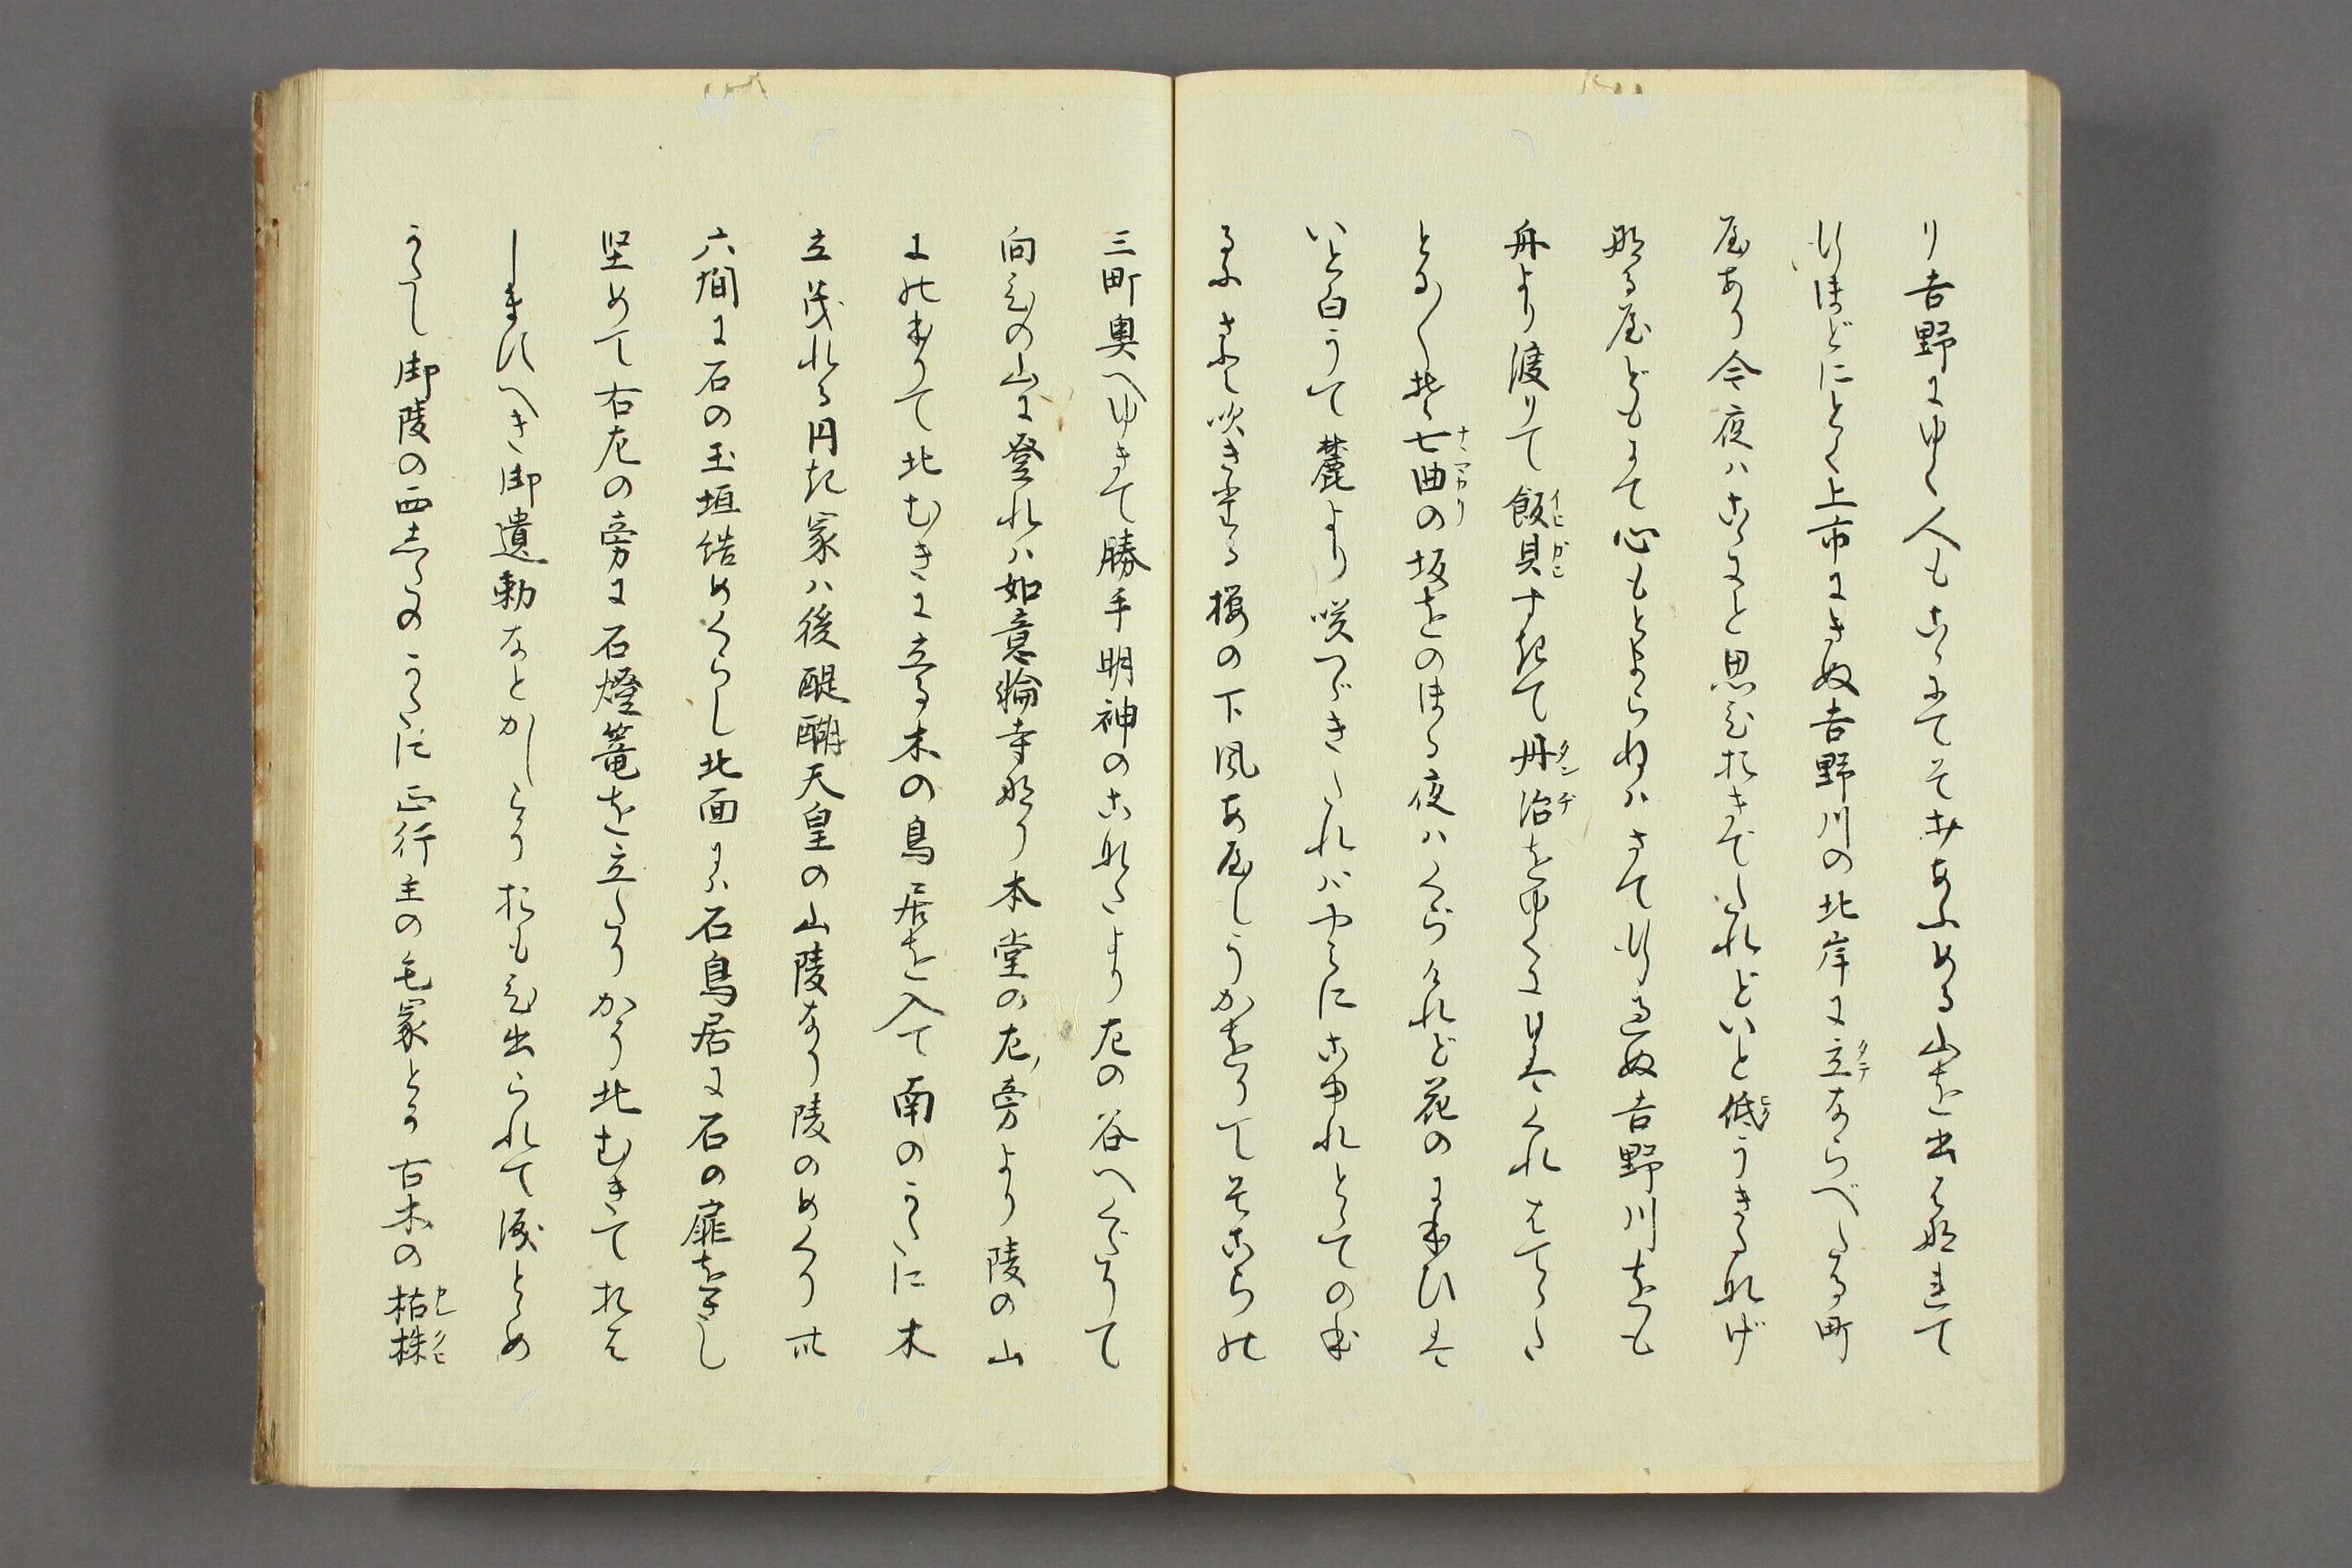 り吉野にゆく人もこゝにてそみあふめる山を出はなれて
行ほどにとく上市にきぬ吉野川の北岸に立ならべたる町
屋あり今夜ハこゝにと思ひおきてたれどいと低うきたなげ
なる屋どもにて心もとまらねハさて行過ぬ吉野川をも
舟より渡りて飯貝すぎて丹治をゆくに日はくれはてゝた
どる〳〵七曲の坂をのほる夜ハくらけれど花のにほひは
いと白うて麓より咲つゞきたれバやみにこゆれとての
るにさと吹きたる桜の下風あやしうかをりてそこらの
三町奥へゆきて勝手明神のこなたより左の谷へくだりて
向ひの山に登れハ如意輪寺なり本堂の左ノ旁より陵の山
にのほりて北むきに立る木の鳥居を入て南のうへに木
立茂れる円き冢ハ後醍醐天皇の山陵なり陵のめくり廿
六間に石の玉垣結めくらし北面にハ石鳥居に石の扉をさし
堅めて右左の旁に石燈篭を立たりかう北むきておは
しますへき御遺勅なとかしこうおもひ出られて涙とゝめ
かたし御陵の西しりのかたに正行主の毛冢とか古木の枯株